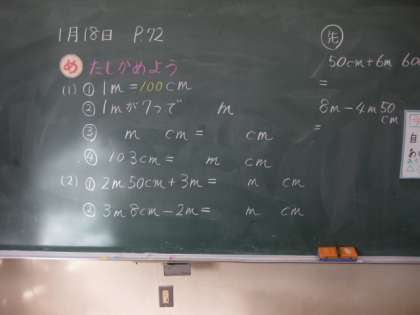 1月18日 P.72
め たしかめよう
(1) ① 1m=100cm
② 1mが7つで m
③ m cm= cm
④ 103cm= m cm
(2) ① 2m50cm+3m= m cm
② 3m8cm-2m= m cm
先
50cm+6m 60
=
8m-4m50
cm
=
自